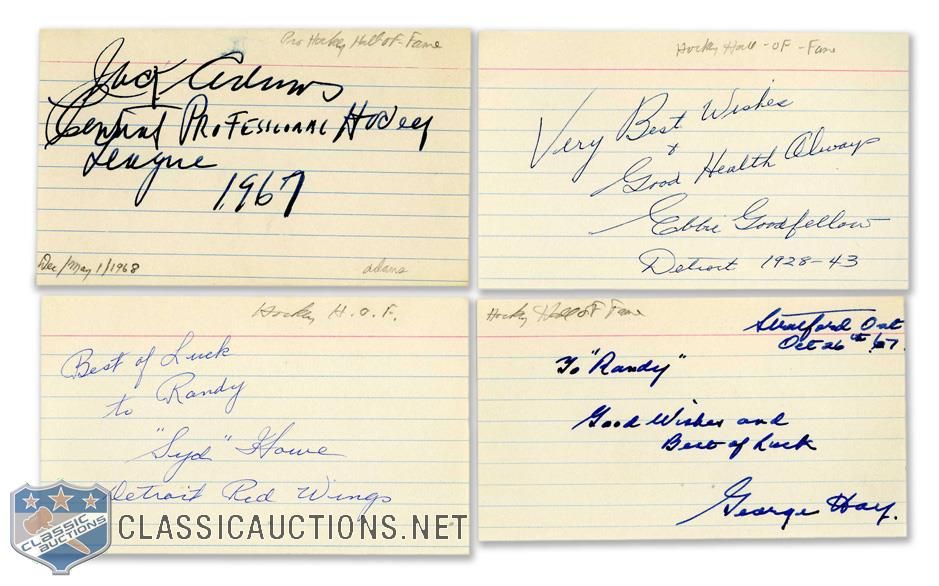 Pro Hockey Hall-of-Fame
Jack Adams
Central Professional Hockey
League
1967
Dec/May 1/1968
adams
Hockey Hall-OF-Fame
Very Best Wishes
+
Good Health Always
Ebbie Goodfellow
Detroit 1928-43
Hockey H.O.F.
Best of Luck
to Randy
"Syd" Howe
Detroit Red Wings
Hockey Hall of Fame
Stratford Ont
Oct 26th 67.
To "Randy"
Good Wishes and
Best of Luck
George Hay.
CLASSIC
AUCTIONS
CLASSICAUCTIONS.NET